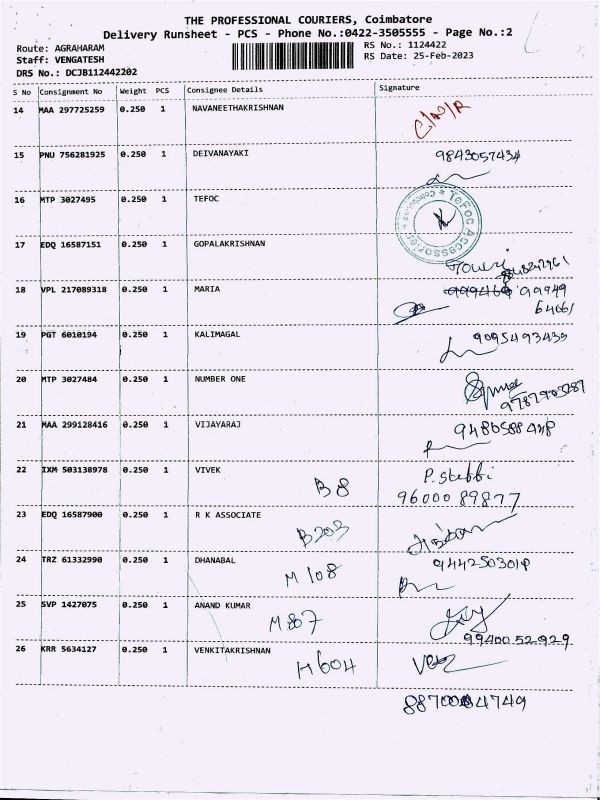 THE PROFESSIONAL COURIERS, Coimbatore
Delivery Runsheet - PCS - Phone No.:0422-3505555 - Page No.:2
Route: AGRAHARAM
RS No.: 1124422
Staff: VENGATESH
RS Date: 25-Feb-2023
DRS No.: DCJB112442202
S No Consignment No Weight PCS Consignee Details Signature
14 MAA 297725259 0.250 1 NAVANEETHAKRISHNAN
15 PNU 756281925 0.250 1 DEIVANAYAKI 9843057434
16 MTP 3027495 0.250 1 TEFOC
TeFoc Accessories
17 EDQ 16587151 0.250 1 GOPALAKRISHNAN
Gowri
18 VPL 217089318 0.250 1 MARIA 99949
64061
19 PGT 6010194 0.250 1 KALIMAGAL 9095493439
20 MTP 3027484 0.250 1 NUMBER ONE
21 MAA 299128416 0.250 1 VIJAYARAJ
22 IXM 503138978 0.250 1 VIVEK B8
9600089877
23 EDQ 16587900 0.250 1 R K ASSOCIATE B203
24 TRZ 61332990 0.250 1 DHANABAL M 108
25 SVP 1427075 0.250 1 ANAND KUMAR M 807
9940052929
26 KRR 5634127 0.250 1 VENKITAKRISHNAN H604